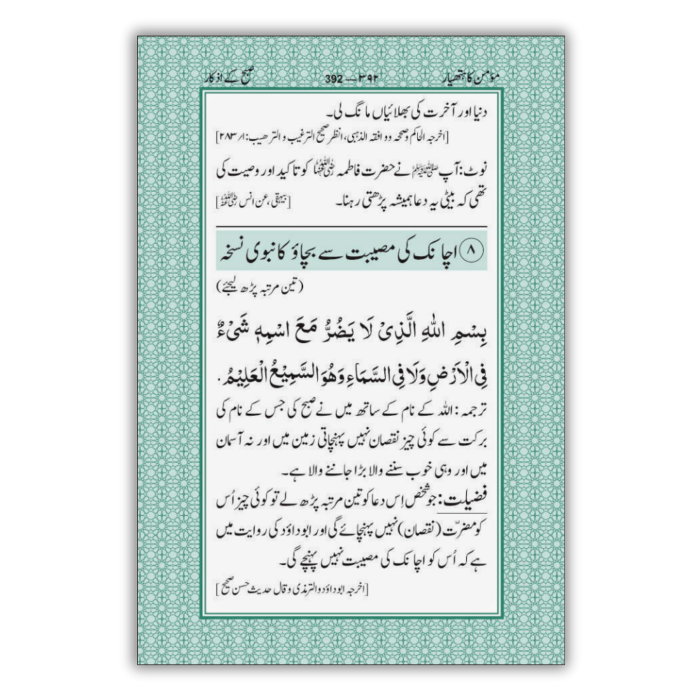 مؤمن کا ہتھیار
392 — ۳۹۲
صبح کے اذکار
دنیا اور آخرت کی بھلائیاں مانگ لی۔
[اخرجہ الحاکم وصححہ ووافقہ الذہبی، انظر صحیح الترغیب و الترھیب: ۱/ ۲۸۳]
نوٹ: آپ ﷺ نے حضرت فاطمہ رضی اللہ عنہا کو تاکید اور وصیت کی
تھی کہ بیٹی یہ دعا ہمیشہ پڑھتی رہنا۔ [بیہقی، عن انس رضی اللہ عنہ]
۸ اچانک کی مصیبت سے بچاؤ کا نبوی نسخہ
(تین مرتبہ پڑھ لیجئے)
بِسْمِ اللّٰهِ الَّذِیْ لَا یَضُرُّ مَعَ اسْمِهٖ شَیْءٌ
فِی الْاَرْضِ وَلَا فِی السَّمَاءِ وَهُوَ السَّمِیْعُ الْعَلِیْمُ.
ترجمہ: اللہ کے نام کے ساتھ میں نے صبح کی جس کے نام کی
برکت سے کوئی چیز نقصان نہیں پہنچاتی زمین میں اور نہ آسمان
میں اور وہی خوب سننے والا بڑا جاننے والا ہے۔
فضیلت: جو شخص اِس دعا کو تین مرتبہ پڑھ لے تو کوئی چیز اُس
کو مضرّت (نقصان) نہیں پہنچائے گی اور ابوداؤد کی روایت میں
ہے کہ اُس کو اچانک کی مصیبت نہیں پہنچے گی۔
[اخرجہ ابوداؤد والترمذی وقال حدیث حسن صحیح]